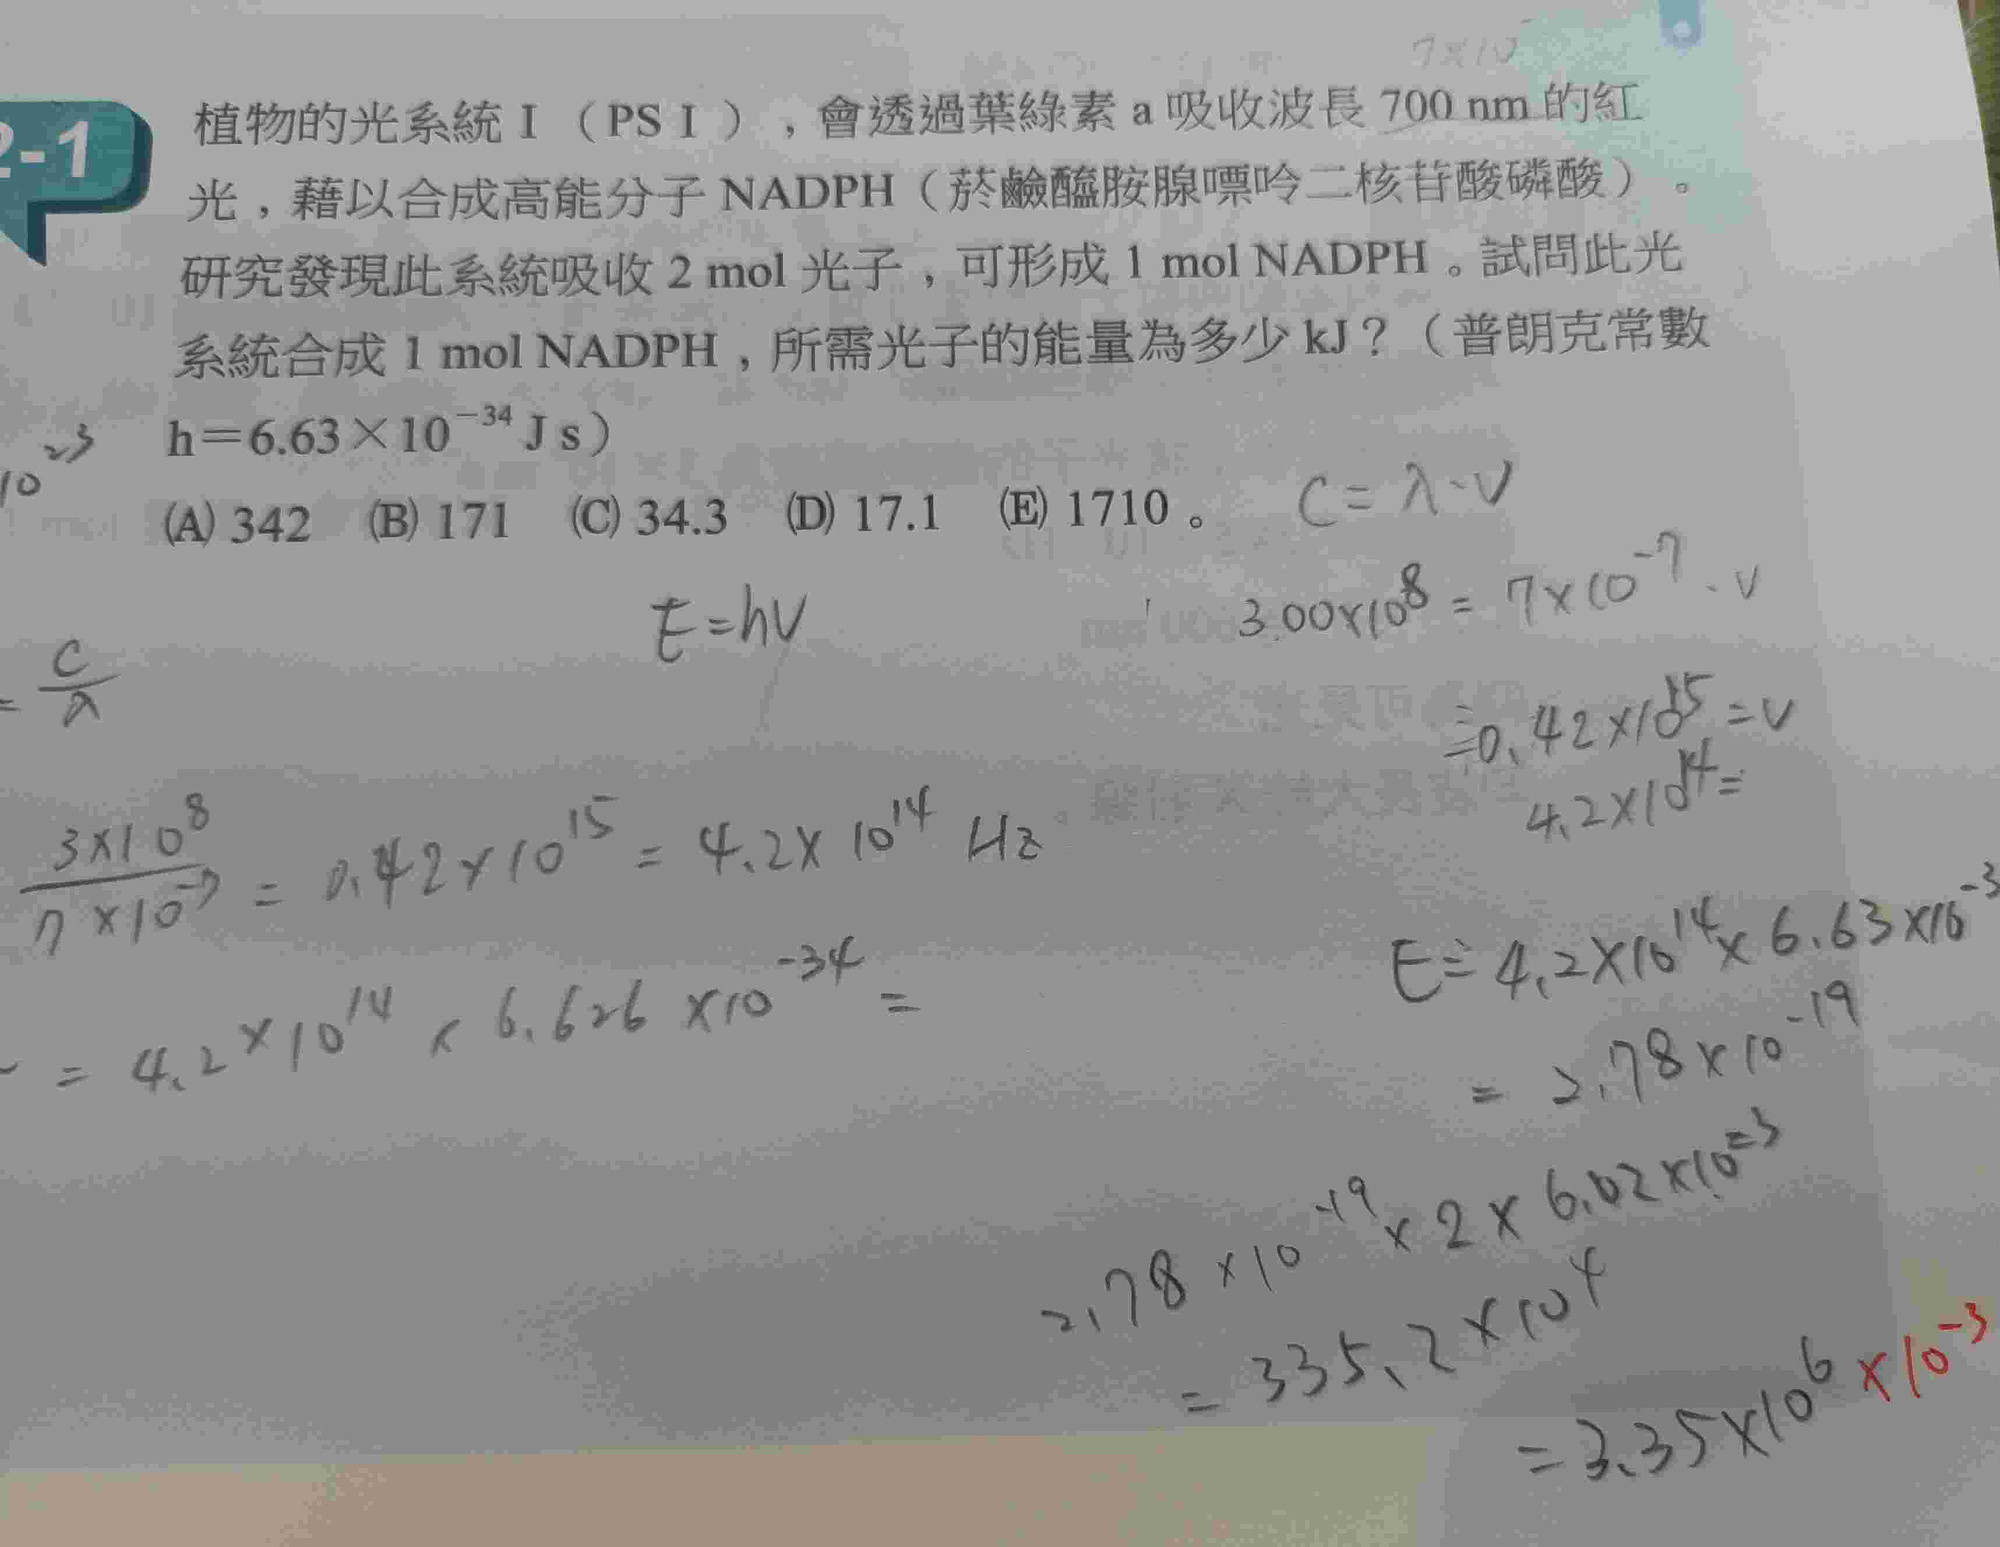 7×10
2-1
植物的光系統 I （PS I ），會透過葉綠素 a 吸收波長 700 nm 的紅
光，藉以合成高能分子 NADPH（菸鹼醯胺腺嘌呤二核苷酸磷酸）。
研究發現此系統吸收 2 mol 光子，可形成 1 mol NADPH。試問此光
系統合成 1 mol NADPH，所需光子的能量為多少 kJ？（普朗克常數
h＝6.63×10⁻³⁴ J s）
10²³
(A) 342 (B) 171 (C) 34.3 (D) 17.1 (E) 1710。
C = λ·ν
E = hν
3.00×10⁸ = 7×10⁻⁷·ν
= C/λ
≒0.42×10¹⁵ = ν
4.2×10¹⁴ =
3×10⁸/7×10⁻⁷ = 0.42×10¹⁵ = 4.2×10¹⁴ Hz
E≒4.2×10¹⁴×6.63×10⁻³
= 4.2×10¹⁴ × 6.626×10⁻³⁴ =
= 2.78×10⁻¹⁹
2.78×10⁻¹⁹×2×6.02×10²³
= 335.2×10⁴
= 3.35×10⁶×10⁻³